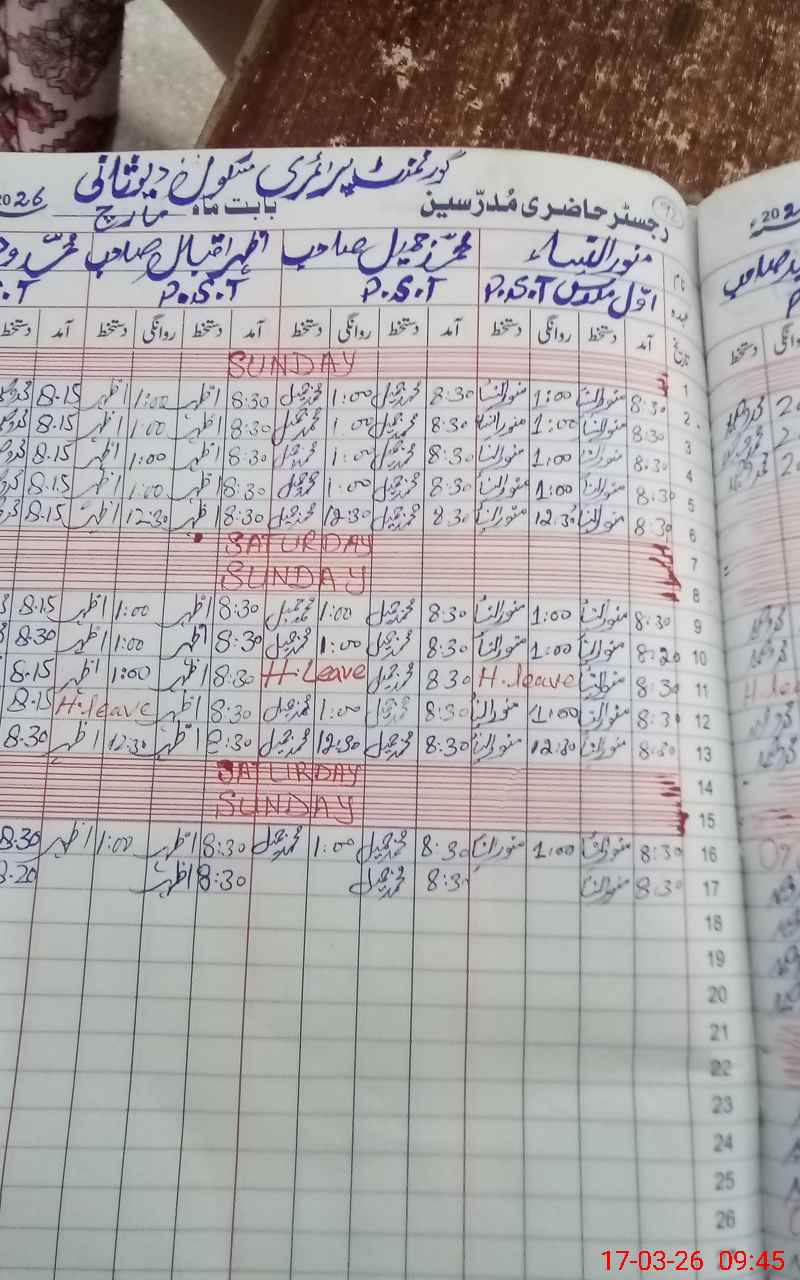 گورنمنٹ پرائمری سکول
رجسٹر حاضری مُدرّسین بابت ماہ مارچ 2026
نام منور النساء محمد جمیل صاحب اظہر اقبال صاحب
عہدہ اوّل مدرس P.S.T P.S.T P.S.T S.T
تاریخ آمد دستخط روانگی دستخط آمد دستخط روانگی دستخط آمد دستخط روانگی دستخط آمد دستخط
1 SUNDAY
2 8:30 منورالنسا 1:00 منورالنسا 8:30 محمد جمیل 1:00 محمد جمیل 8:30 اظہر 1:00 اظہر 8.15
3 8:30 منورالنسا 1:00 منورالنسا 8:30 محمد جمیل 1:00 محمد جمیل 8:30 اظہر 1:00 اظہر 8.15
4 8:30 منورالنسا 1:00 منورالنسا 8:30 محمد جمیل 1:00 محمد جمیل 8:30 اظہر 1:00 اظہر 8.15
5 8:30 منورالنسا 1:00 منورالنسا 8:30 محمد جمیل 1:00 محمد جمیل 8:30 اظہر 1:00 اظہر 8.15
6 8:30 منورالنسا 12:30 منورالنسا 8:30 محمد جمیل 12:30 محمد جمیل 8:30 اظہر 12:30 اظہر 8.15
7 SATURDAY
8 SUNDAY
9 8:30 منورالنسا 1:00 منورالنسا 8:30 محمد جمیل 1:00 محمد جمیل 8:30 اظہر 1:00 اظہر 8.15
10 8:20 منورالنسا 1:00 منورالنسا 8:30 محمد جمیل 1:00 محمد جمیل 8:30 اظہر 1:00 اظہر 8.30
11 8:30 منورالنسا H.leave 8 30 محمد جمیل H.Leave 8:30 اظہر 1:00 اظہر 8.15
12 8:30 منورالنسا 1:00 منورالنسا 8:30 محمد جمیل 1:00 محمد جمیل 8:30 اظہر H.leave 8.15
13 8:30 منورالنسا 12:30 منورالنسا 8:30 محمد جمیل 12:30 محمد جمیل 8:30 اظہر 12:30 اظہر 8.30
14 SATURDAY
15 SUNDAY
16 8:30 منورالنسا 1:00 منورالنسا 8:30 محمد جمیل 1:00 محمد جمیل 8:30 اظہر 1:00 اظہر 8.30
17 8:30 منورالنسا 8:30 محمد جمیل 8:30 اظہر 8.20
18
19
20
21
22
23
24
25
26
17-03-26 09:45